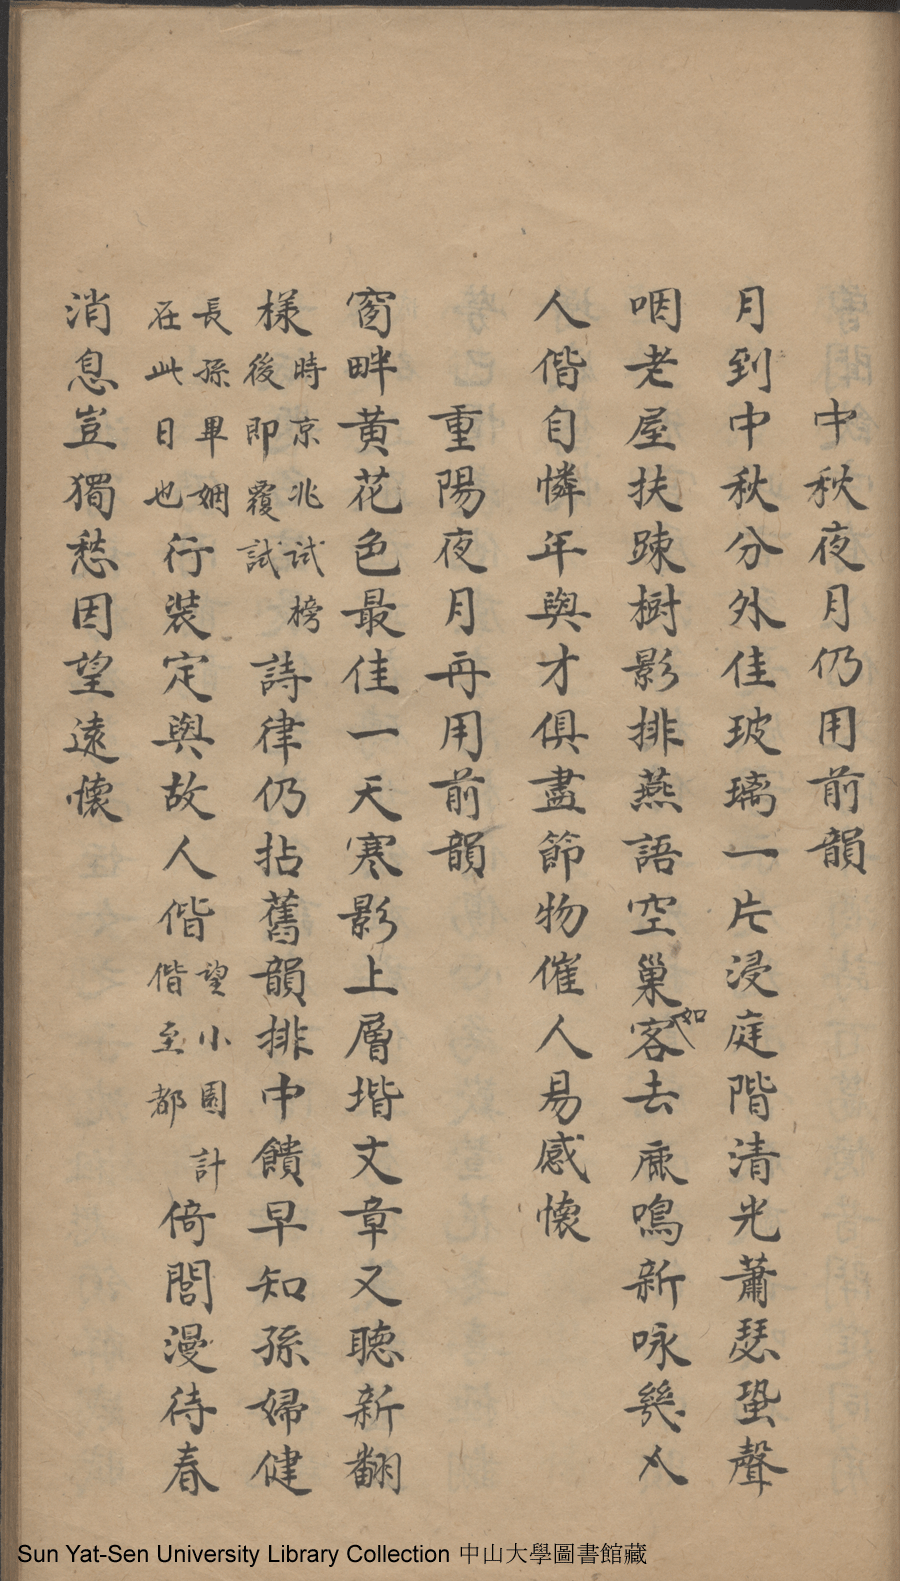 中秋夜月仍用前韻
月到中秋分外佳玻璃一片浸庭階清光蕭瑟蛩聲
咽老屋扶踈樹影排燕語空巢如客去鹿鳴新咏幾
人偕自憐年與才俱盡節物催人易感懷
重陽夜月再用前韻
窗畔黃花色最佳一天寒影上層堦文章又聽新翻
樣時京兆試榜後即覆試詩律仍拈舊韻排中饋早知孫婦健
長孫畢姻在此日也行裝定與故人偕望小園計偕至都倚閭漫待春
消息豈獨愁因望遠懷
Sun Yat-Sen University Library Collection 中山大學圖書館藏